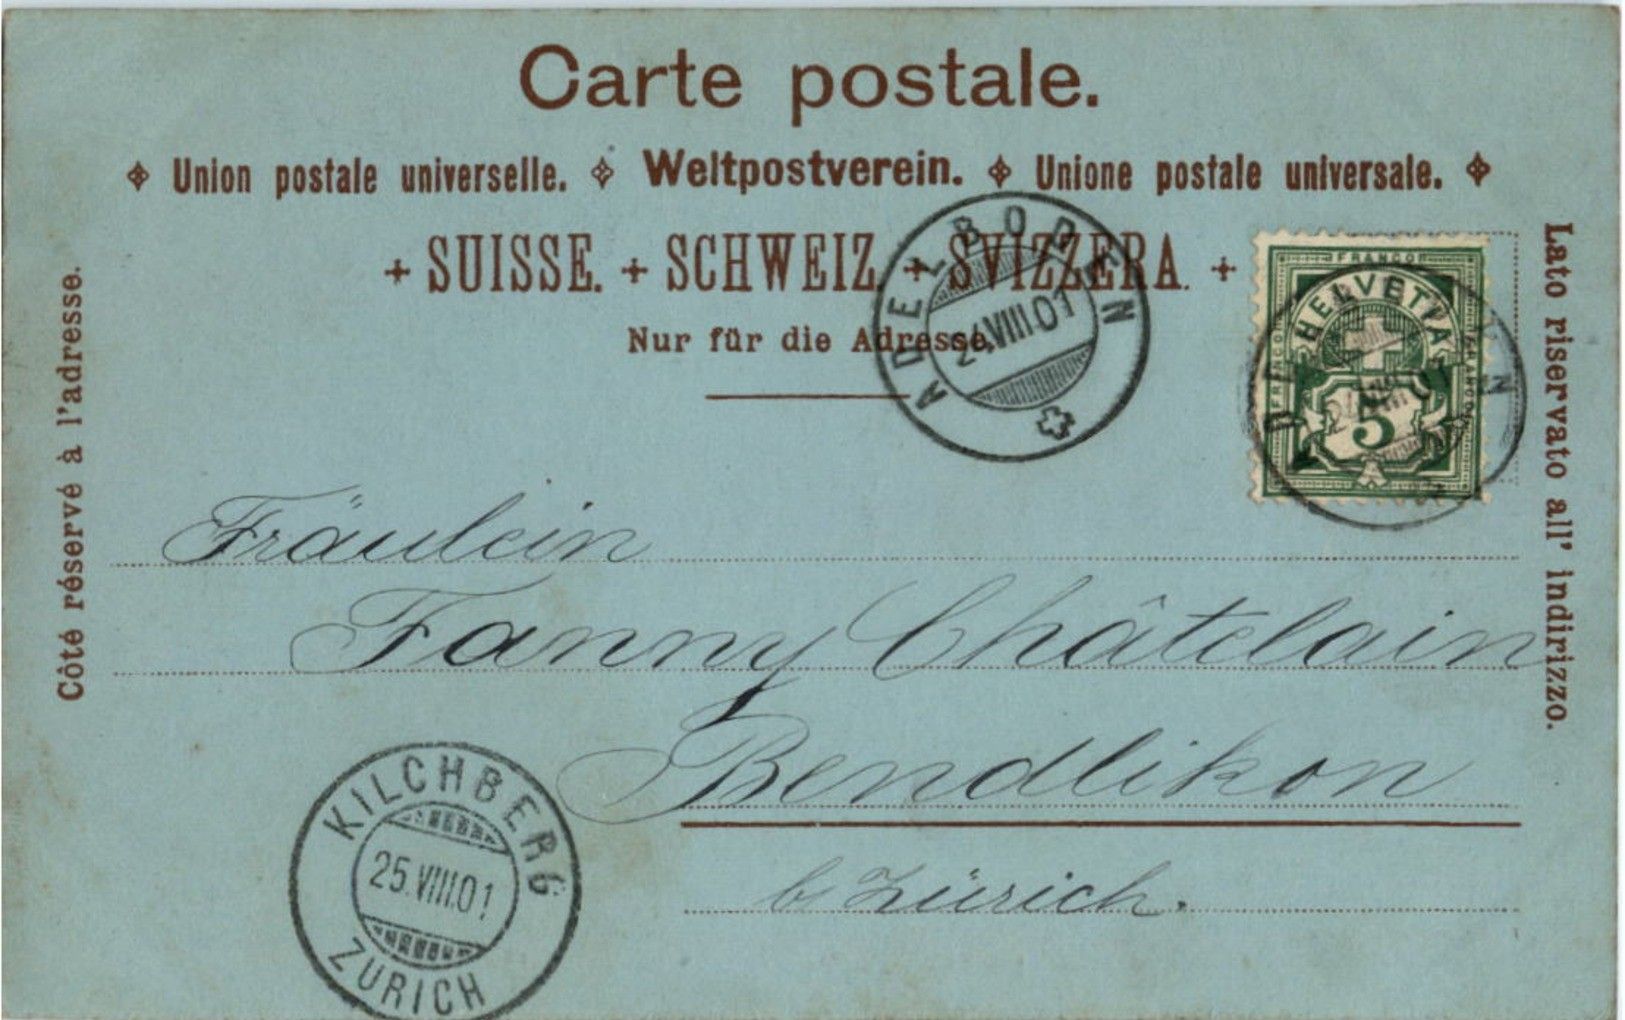 Carte postale.
Union postale universelle. Weltpostverein. Unione postale universale.
+ SUISSE. + SCHWEIZ. + SVIZZERA. +
Nur für die Adresse.
Côté réservé à l'adresse.
Lato riservato all' indirizzo.
ADELBODEN
24.VIII.01
FRANCO
HELVETIA
FRANCO
FRANCO
5
Fräulein
Fanny Châtelain
Bendlikon
b/Zürich.
KILCHBERG
25.VIII.01
ZÜRICH